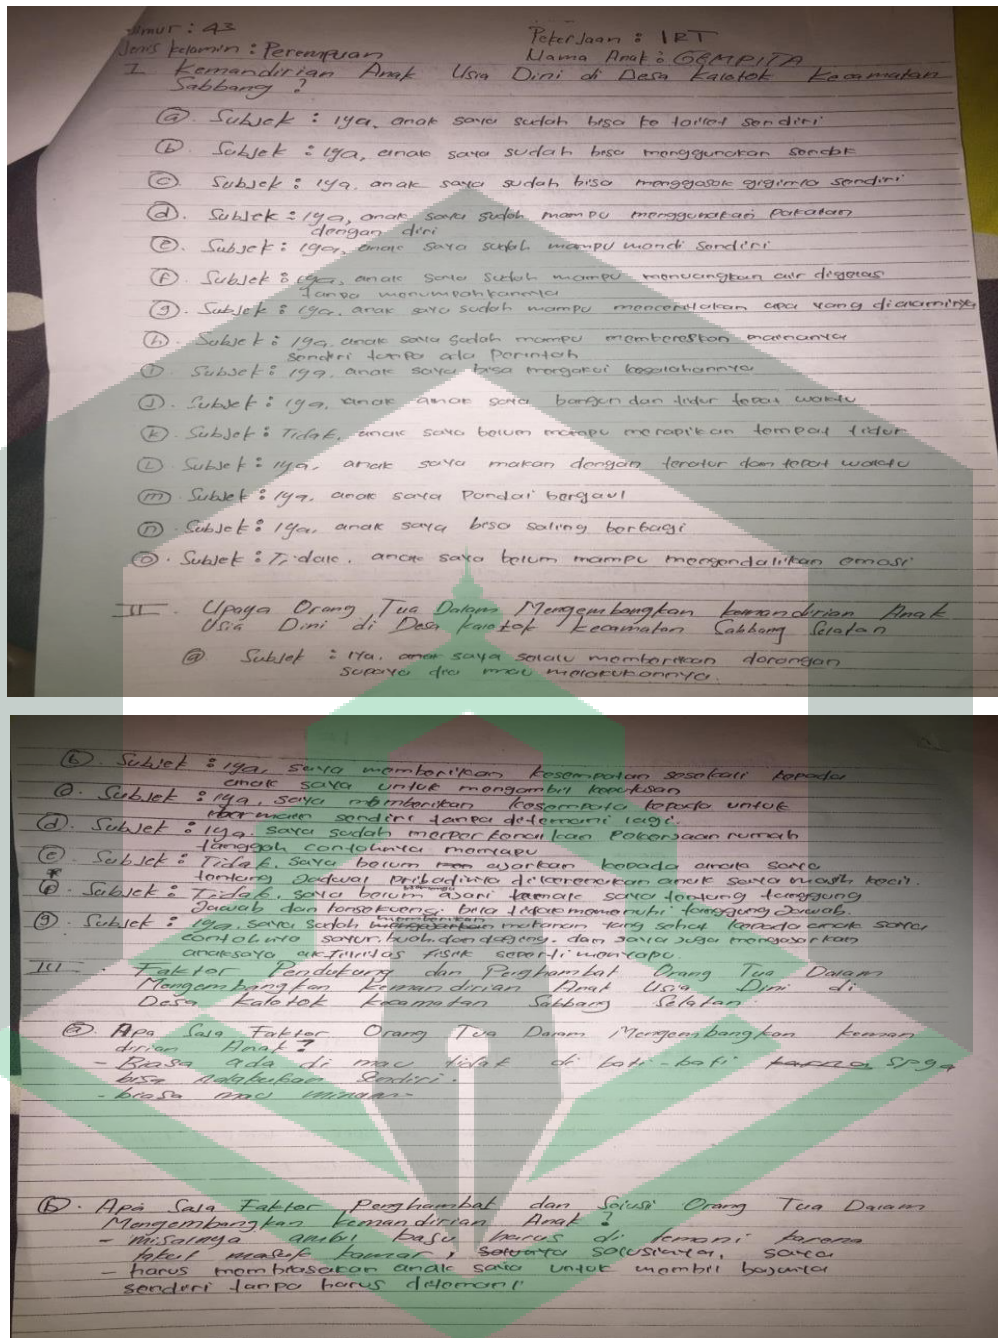 Umur : 43
Pekerjaan : IRT
Jenis kelamin : Perempuan
Nama Anak : GEMPITA
I. Kemandirian Anak Usia Dini di Desa Kalotok Kecamatan
Sabbang ?
(a). Subjek : Iya, anak saya sudah bisa ke toilet sendiri
(b). Subjek : Iya, anak saya sudah bisa menggunakan sendok
(c). Subjek : Iya, anak saya sudah bisa menggosok giginya sendiri
(d). Subjek : Iya, anak saya sudah mampu menggunakan pakaian
dengan diri
(e). Subjek : Iya, anak saya sudah mampu mandi sendiri
(f). Subjek : Iya, anak saya sudah mampu menuangkan air digelas
tanpa menumpahkannya
(g). Subjek : Iya, anak saya sudah mampu menceritakan apa yang dialaminya
(h). Subjek : Iya, anak saya sudah mampu membereskan mainanya
sendiri tanpa ada perintah
(i). Subjek : Iya, anak saya bisa mengakui kesalahannya
(J). Subjek : Iya, anak anak saya bangun dan tidur tepat waktu
(k). Subjek : Tidak, anak saya belum mampu merapikan tempat tidur
(L). Subjek : Iya, anak saya makan dengan teratur dan tepat waktu
(m). Subjek : Iya, anak saya Pandai bergaul
(n). Subjek : Iya, anak saya bisa saling berbagi
(o). Subjek : Tidak, anak saya belum mampu mengendalikan emosi
II. Upaya Orang Tua Dalam Mengembangkan kemandirian Anak
Usia Dini di Desa Kalotok Kecamatan Sabbang Selatan
(a) Subjek : Iya, anak saya selalu memberikan dorongan
supaya dia mau melakukannya.
(b). Subjek : Iya, saya memberikan kesempatan sesekali kepada
anak saya untuk mengambil keputusan
Subjek : Iya, saya memberikan kesempata kepada untuk
bermain sendiri tanpa ditemani lagi.
(d). Subjek : Iya, saya sudah pekerjaan rumah
tanggah contohnya menyapu
(e). Subjek : Tidak, saya belum ajarkan kepada anak saya
tentang Jadwal pribadinya dikarenakan anak saya masih kecil.
(f). Subjek : Tidak, saya belum ajari anak saya tentang tanggung
Jawab dan konsekuensi bila tidak memenuhi tanggung Jawab.
(g). Subjek : Iya, saya sudah memberikan makanan yang sehat kepada anak saya
contohnya sayur, buah, dan daging. dan saya juga mengajarkan
anak saya aktifitas fisik seperti menyapu.
III. Faktor Pendukung dan Penghambat Orang Tua Dalam
Mengembangkan Kemandirian Anak Usia Dini di
Desa Kalotok Kecamatan Sabbang Selatan
(a). Apa Saja Faktor Orang Tua Dalam Mengembangkan Keman
dirian Anak ?
- Biasa ada di mau tidak di kati-kati karna
bisa sendiri.
- biasa mau
(b). Apa Saja Faktor Penghambat dan Solusi Orang Tua Dalam
Mengembangkan Kemandirian Anak ?
- misalnya ambil baju harus di temani karena
takut masuk kamar, solusinya, saya
- harus membiasakan anak saya untuk membil bajunya
sendiri tanpa harus ditemani